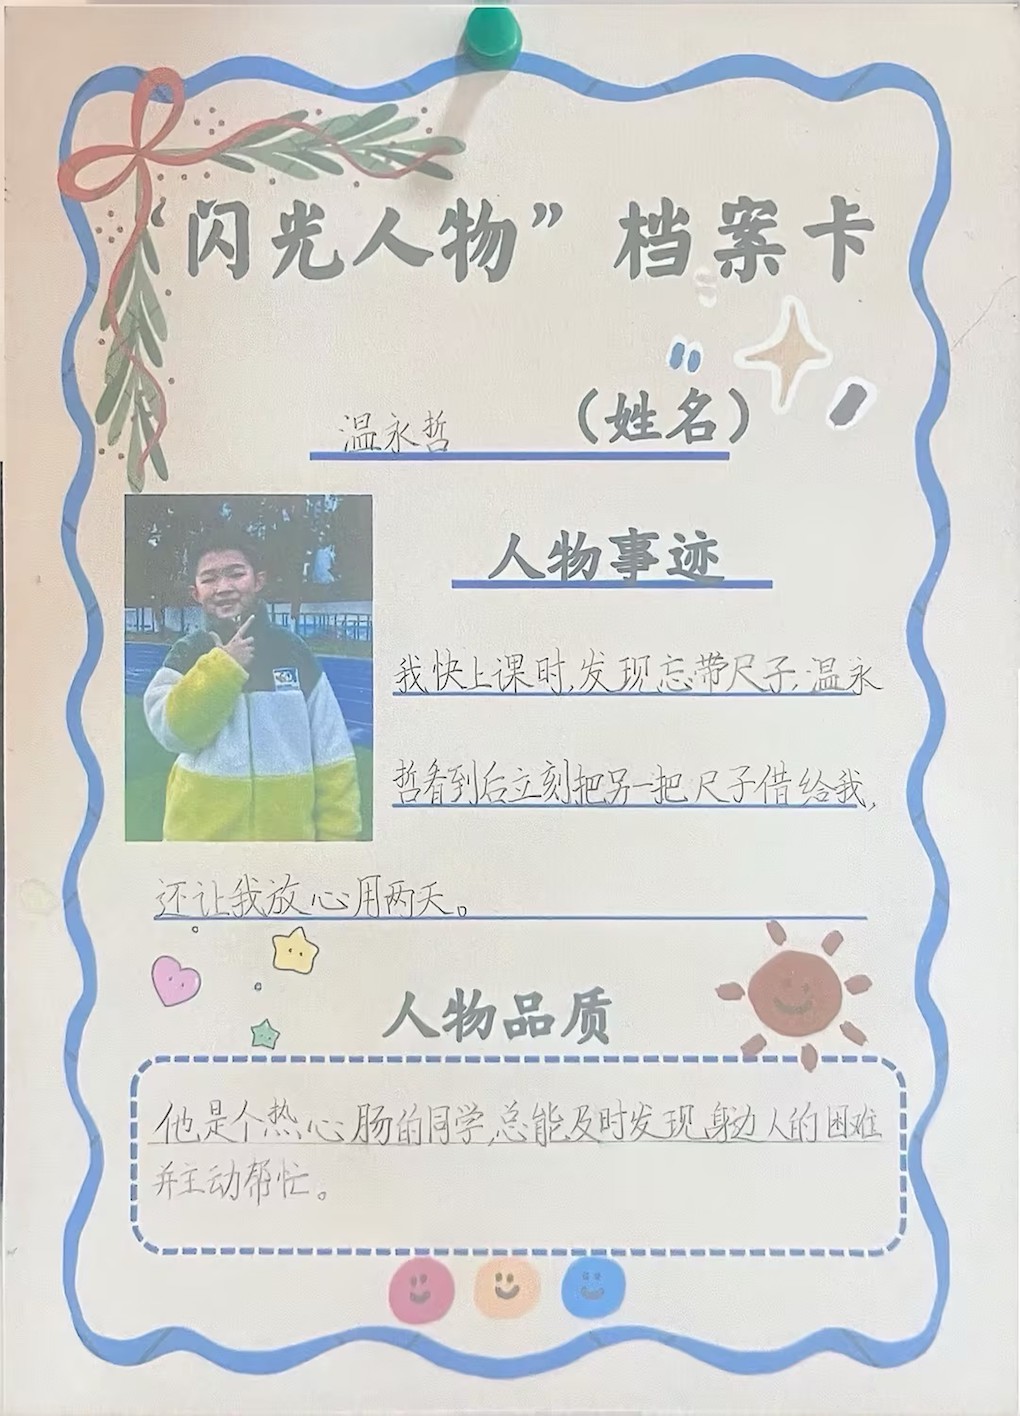 “闪光人物”档案卡
温永哲 （姓名）
人物事迹
我快上课时,发现忘带尺子,温永
哲看到后立刻把另一把尺子借给我,
还让我放心用两天。
人物品质
他是个热心肠的同学,总能及时发现身边人的困难
并主动帮忙。